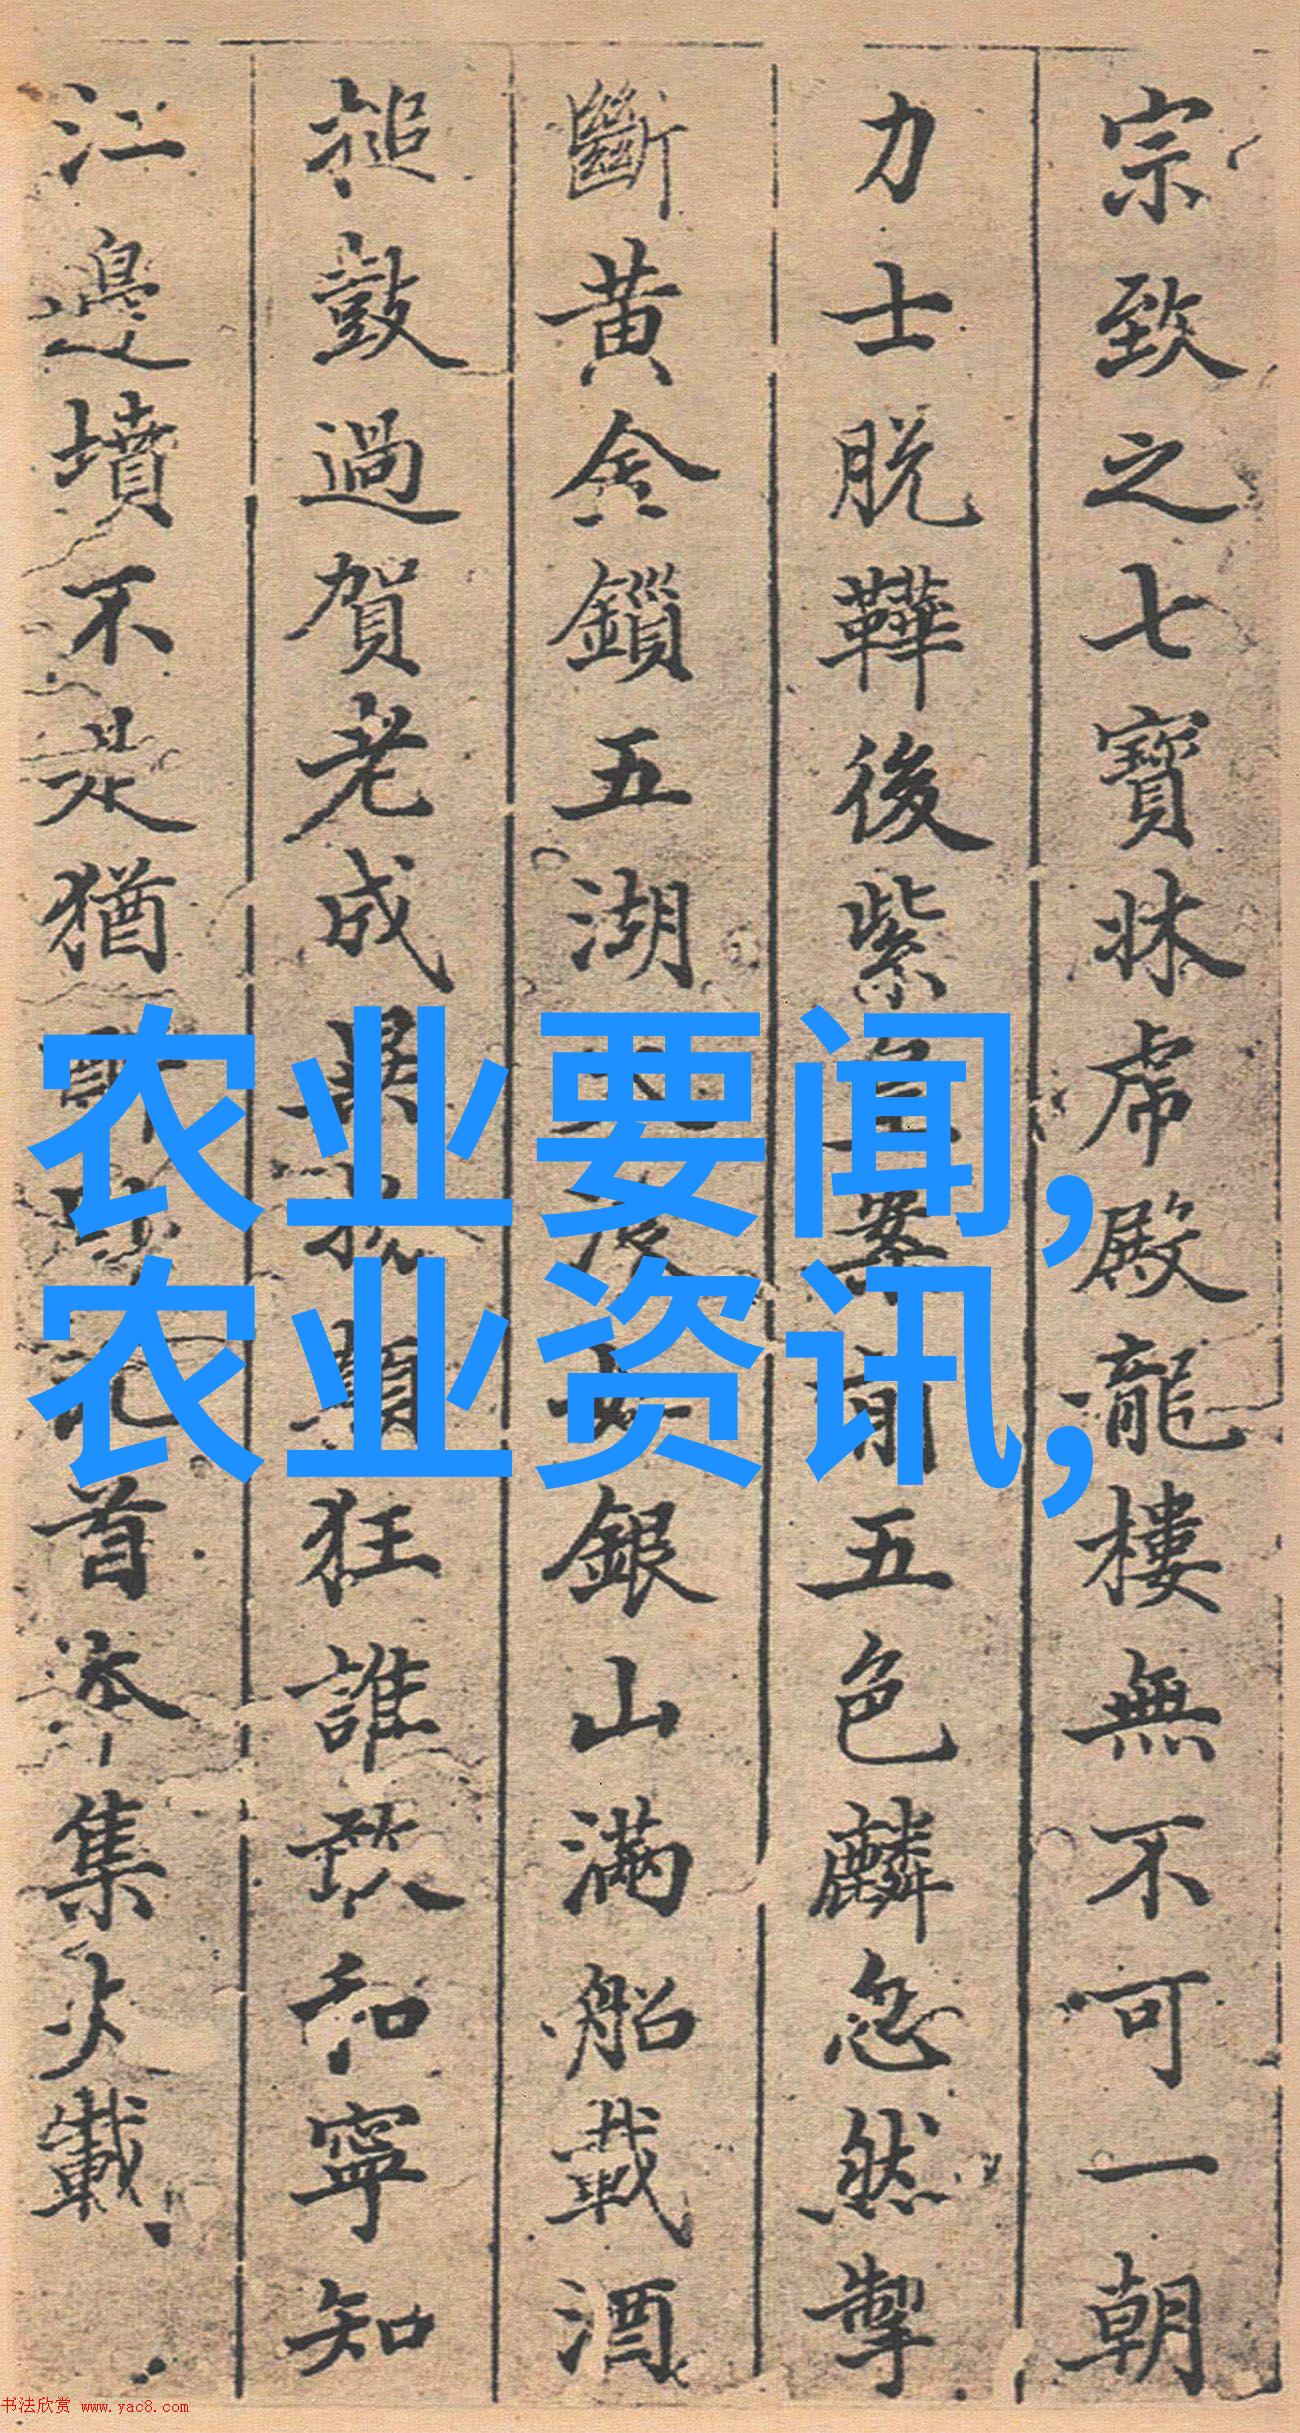 宗致之七寶牀虎殿龍樓無不可一朝
力士脱鞾後紫五色麟忽然掣
斷黄金鎖五湖銀山滿船載酒
搥鼓過賀老成異狂誰敢和寧知
江邊墳不是猶首本集火載
农业要闻,
农业资讯,
书法欣赏 www.yac8.com